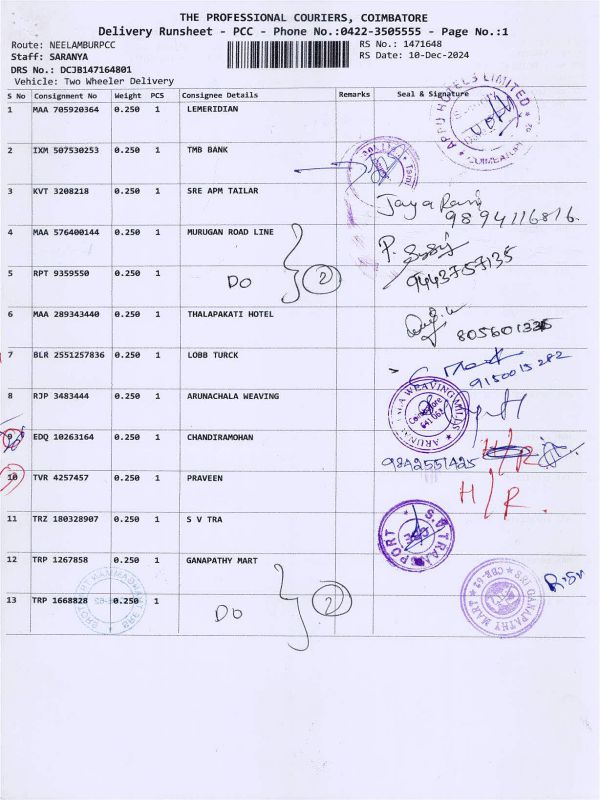 THE PROFESSIONAL COURIERS, COIMBATORE
Delivery Runsheet - PCC - Phone No.:0422-3505555 - Page No.:1
Route: NEELAMBURPCC
RS No.: 1471648
Staff: SARANYA
RS Date: 10-Dec-2024
DRS No.: DCJB147164801
Vehicle: Two Wheeler Delivery
S No Consignment No Weight PCS Consignee Details Remarks Seal & Signature
1 MAA 705920364 0.250 1 LEMERIDIAN
APPU HOTELS LIMITED COIMBATORE
2 IXM 507530253 0.250 1 TMB BANK
3 KVT 3208218 0.250 1 SRE APM TAILAR
Jaya Rani
9894116816.
4 MAA 576400144 0.250 1 MURUGAN ROAD LINE
P.
5 RPT 9359550 0.250 1
DO 2
9443757135
6 MAA 289343440 0.250 1 THALAPAKATI HOTEL
7 BLR 2551257836 0.250 1 LOBB TURCK
9150015282
8 RJP 3483444 0.250 1 ARUNACHALA WEAVING
ARUNACHALA WEAVING MILLS
9 EDQ 10263164 0.250 1 CHANDIRAMOHAN
9842551425 H/R
10 TVR 4257457 0.250 1 PRAVEEN
H/R.
11 TRZ 180328907 0.250 1 S V TRA
S.V TRANSPORT
12 TRP 1267858 0.250 1 GANAPATHY MART
GANAPATHY MART CBE-62
13 TRP 1668828 0.250 1
DO 2